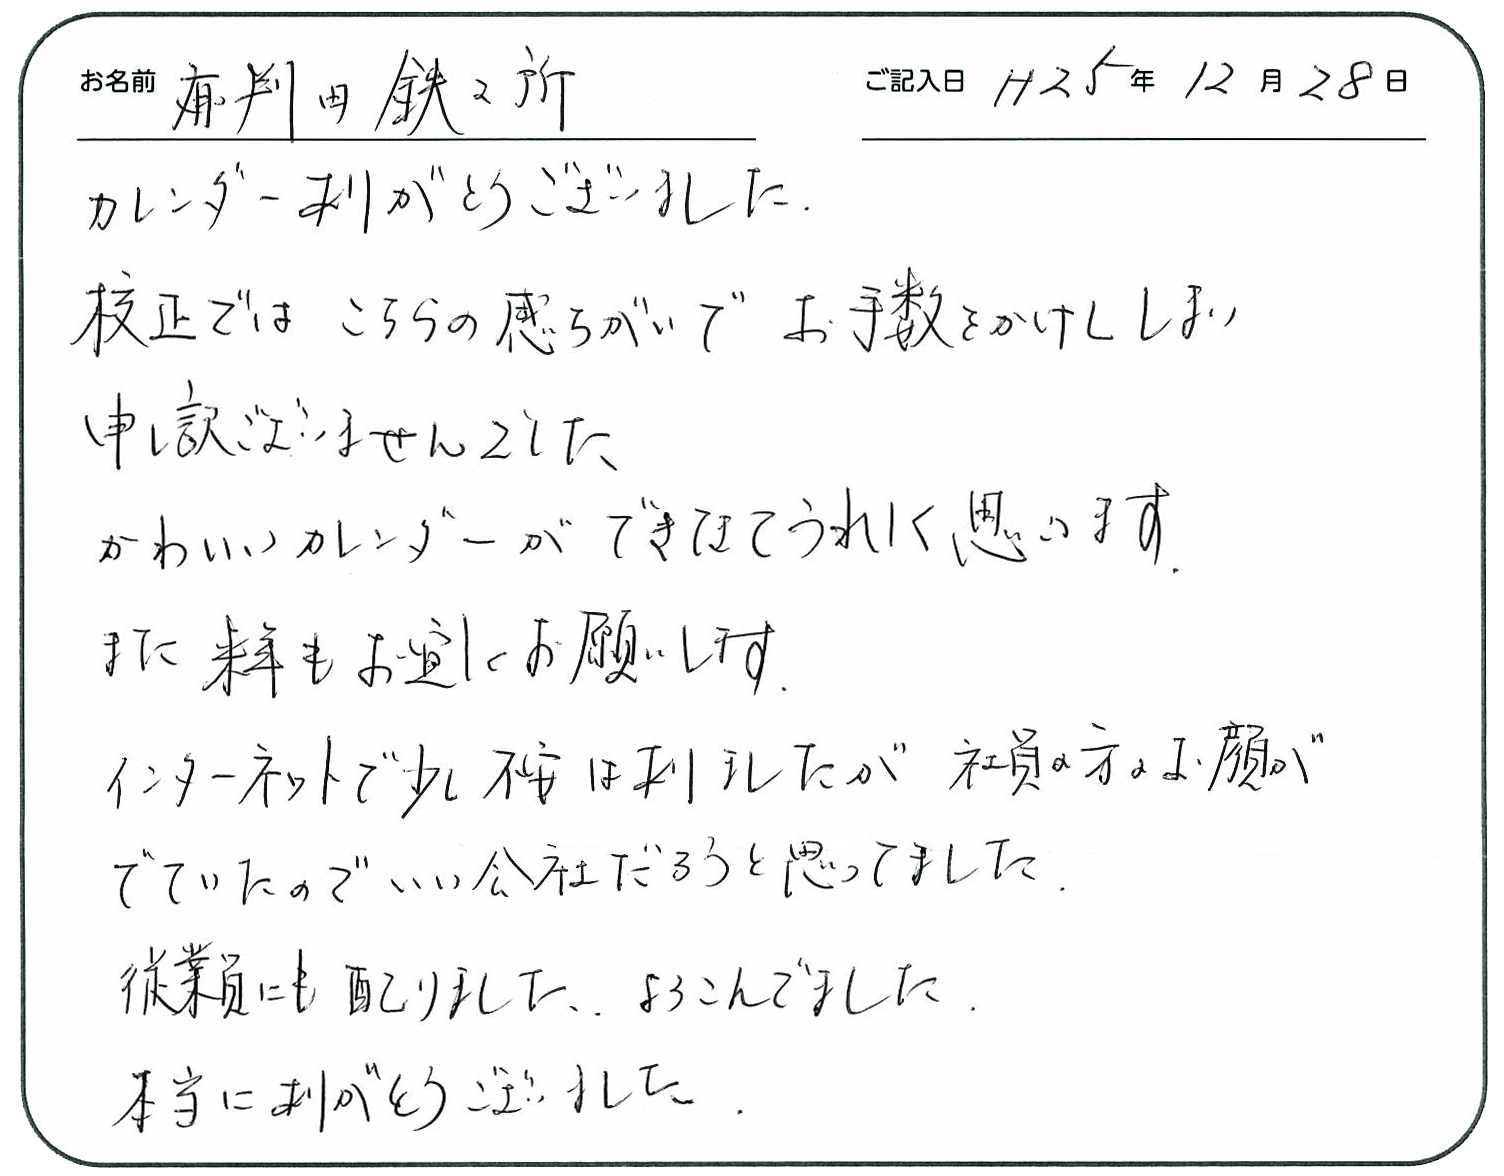 お名前 有判田鉄工所 ご記入日 H25年 12月 28日
カレンダーありがとうございました.
校正では こちらの感ちがいで お手数をかけししまい
申し訳ございませんでした、
かわいいカレンダーが できてきてうれしく思います.
また 来年もお宜しくお願いします.
インターネットで少し不安はありましたが 社員の方のお顔が
でていたので いい会社だろうと思ってました.
従業員にも配りました、. よろこんでました.
本当にありがとうございました.